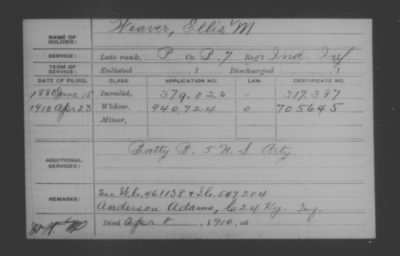 NAME OF SOLDIER: Weaver, Ellis M
SERVICE: Late rank, P Co. B. 7 Reg't Ind. Inf
TERM OF SERVICE: Enlisted , 1 Discharged , 1
DATE OF FILING. CLASS. APPLICATION NO. LAW. CERTIFICATE NO.
1880 June 15 Invalid, 379.026 317.387
1910 Apr 23 Widow, 940,724 0 705645
Minor,
ADDITIONAL SERVICES: Batty B. 5 U.S Arty
REMARKS: See W.C. 461138 &
Anderson Adams, C 24 Ky. Inf.
Died Apr 8 , 1910, at